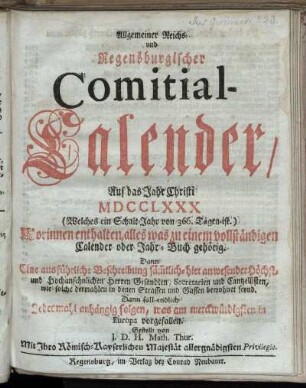 Allgemeiner Reichs-
und
Regensburgischer
Comitial-
Calender/
Auf das Jahr Christi
MDCCLXXX
(Welches ein Schalt-Jahr von 366. Tägen ist.)
Worinnen enthalten, alles was zu einem vollständigen
Calender oder Jahr-Buch gehörig.
Dann
Eine ausführliche Beschreibung sämtlich-hier anwesender Höchst-
und Hochansehnlicher Herren Gesandten, Secretarien und Cantzellisten,
wie solche dermahlen in denen Strassen und Gassen bewohnet seynd.
Dann soll endlich
Jedermahl anhängig folgen, was am merckwürdigsten in
Europa vorgefallen.
Gestellt von
J. D. H. Math. Thur.
Mit Ihro Römisch-Kayserlichen Majestät allergnädigsten Privilegio.
Regensburg, im Verlag bey Conrad Neubauer.